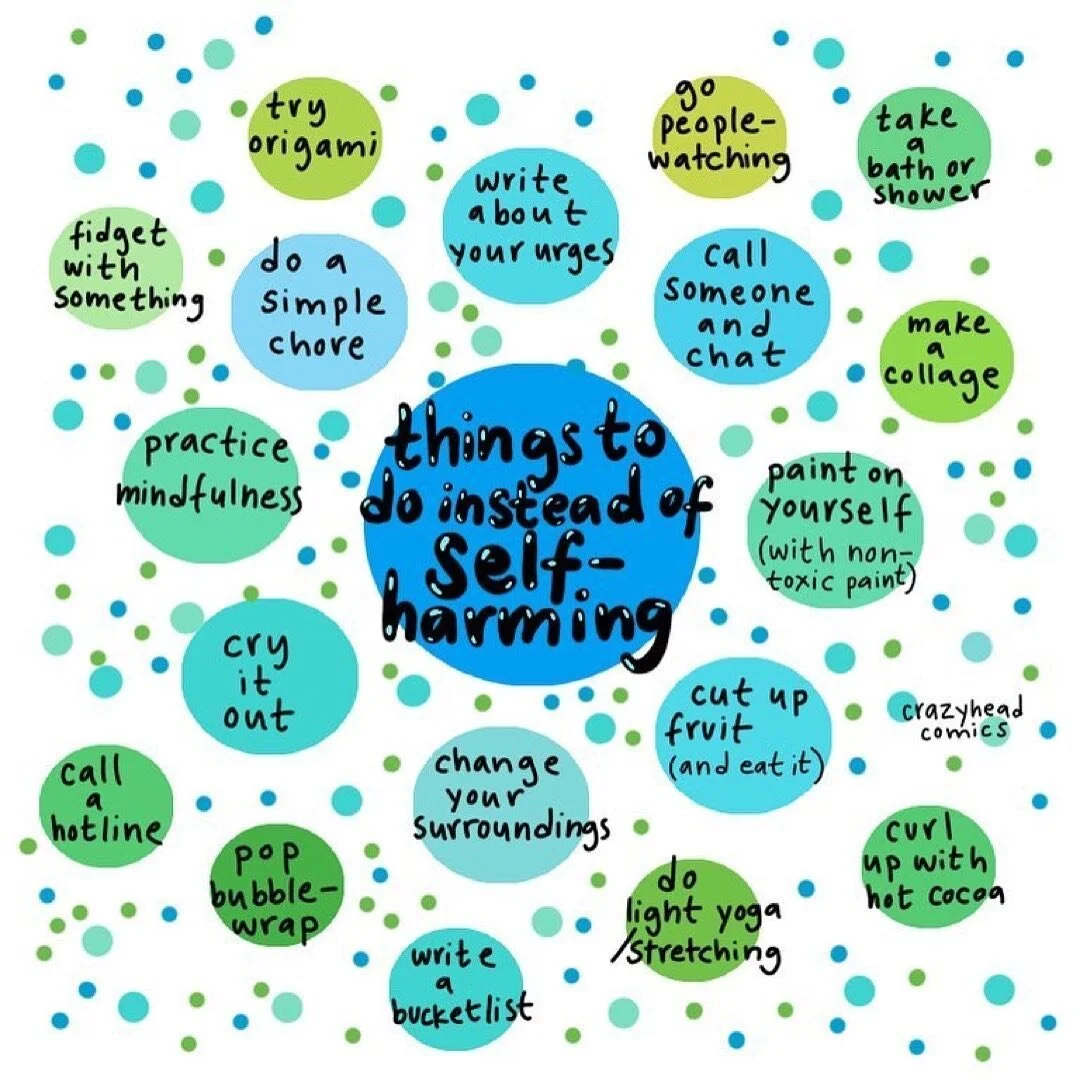 try
origami
go
people-
watching
take
a
bath or
shower
write
about
your urges
fidget
with
something
do a
simple
chore
call
someone
and
chat
make
a
collage
things to
do instead of
self-
harming
practice
mindfulness
paint on
yourself
(with non-
toxic paint)
cry
it
out
cut up
fruit
(and eat it)
crazyhead
comics
call
a
hotline
change
your
surroundings
pop
bubble-
wrap
do
light yoga
/stretching
curl
up with
hot cocoa
write
a
bucketlist